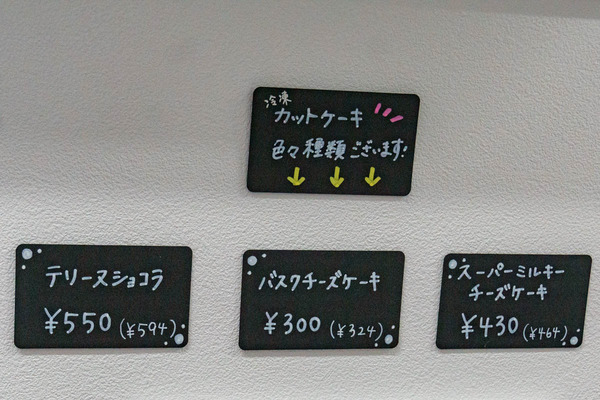 冷凍
カットケーキ
色々種類ございます!
テリーヌショコラ
¥550(¥594)
バスクチーズケーキ
¥300(¥324)
スーパーミルキー
チーズケーキ
¥430(¥464)